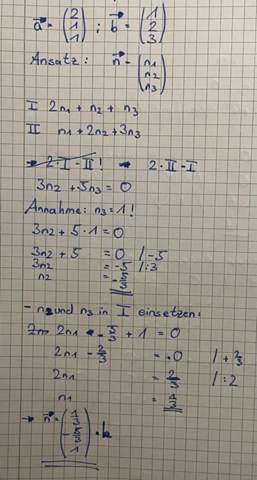 a⃗ = (2 1 1) ; b⃗ = (1 2 3)
Ansatz: n⃗ = (n₁ n₂ n₃)
I 2n₁ + n₂ + n₃
II n₁ + 2n₂ + 3n₃
→ 2·I - II! → 2·II - I
3n₂ + 5n₃ = 0
Annahme: n₃ = 1!
3n₂ + 5·1 = 0
3n₂ + 5 = 0 /-5
3n₂ = -5 /:3
n₂ = -5/3
- n₂ und n₃ in I einsetzen:
2n₁ - 5/3 + 1 = 0
2n₁ - 2/3 = 0 / + 2/3
2n₁ = 2/3 / : 2
n₁ = 1/3
→ n⃗ = (1/3 -5/3 1) · k